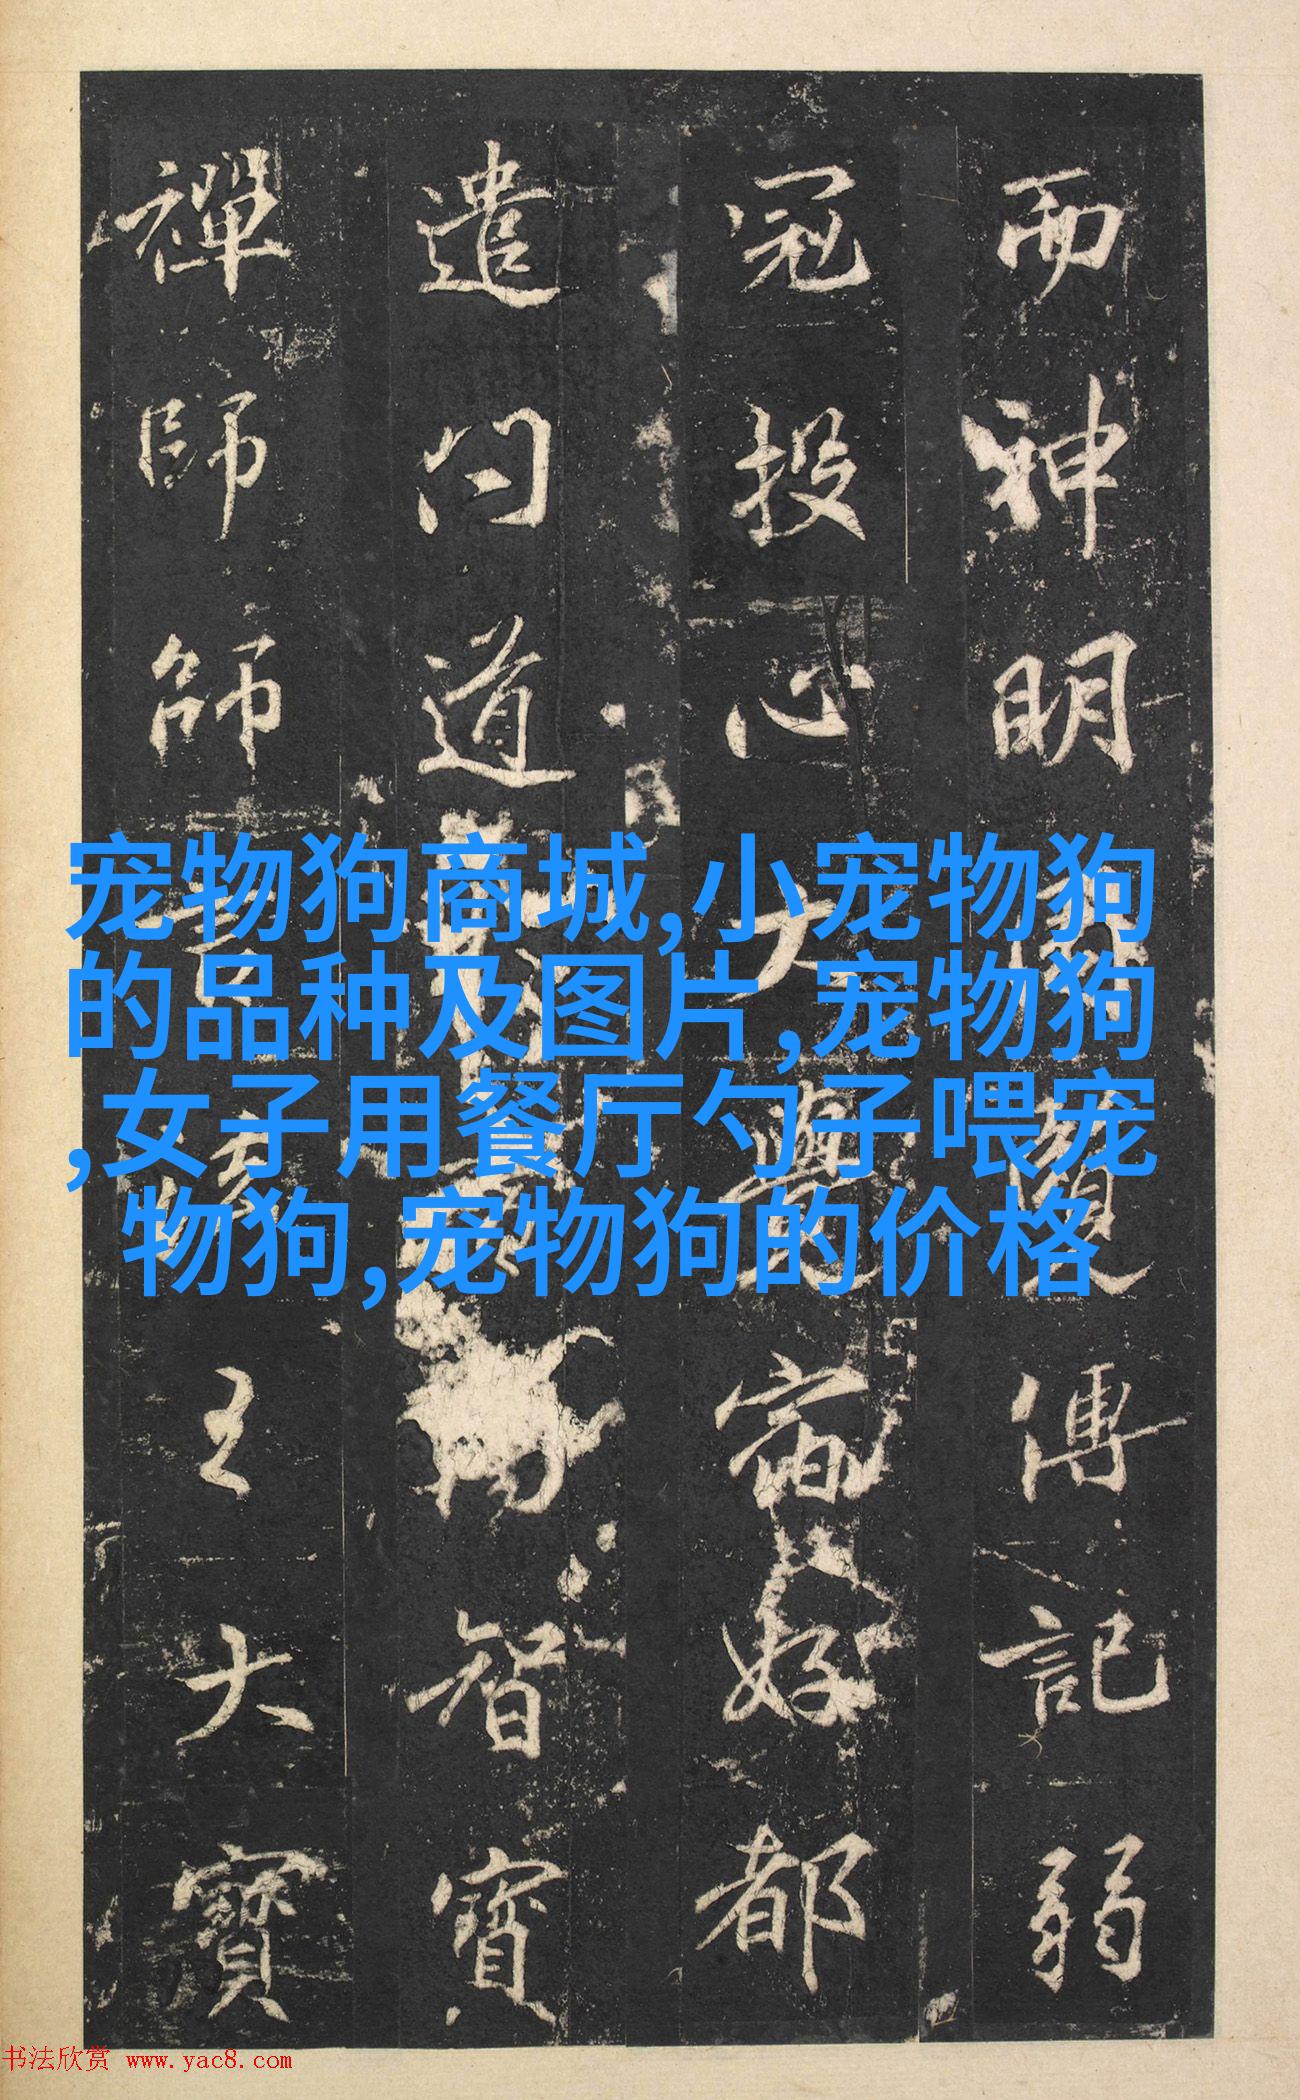 而神明傳記弱
冠投心大宿好都
遣问道智寶
禪師師言王大寶
宠物狗商城,小宠物狗
的品种及图片,宠物狗
,女子用餐厅勺子喂宠
物狗,宠物狗的价格
书法欣赏 www.yac8.com